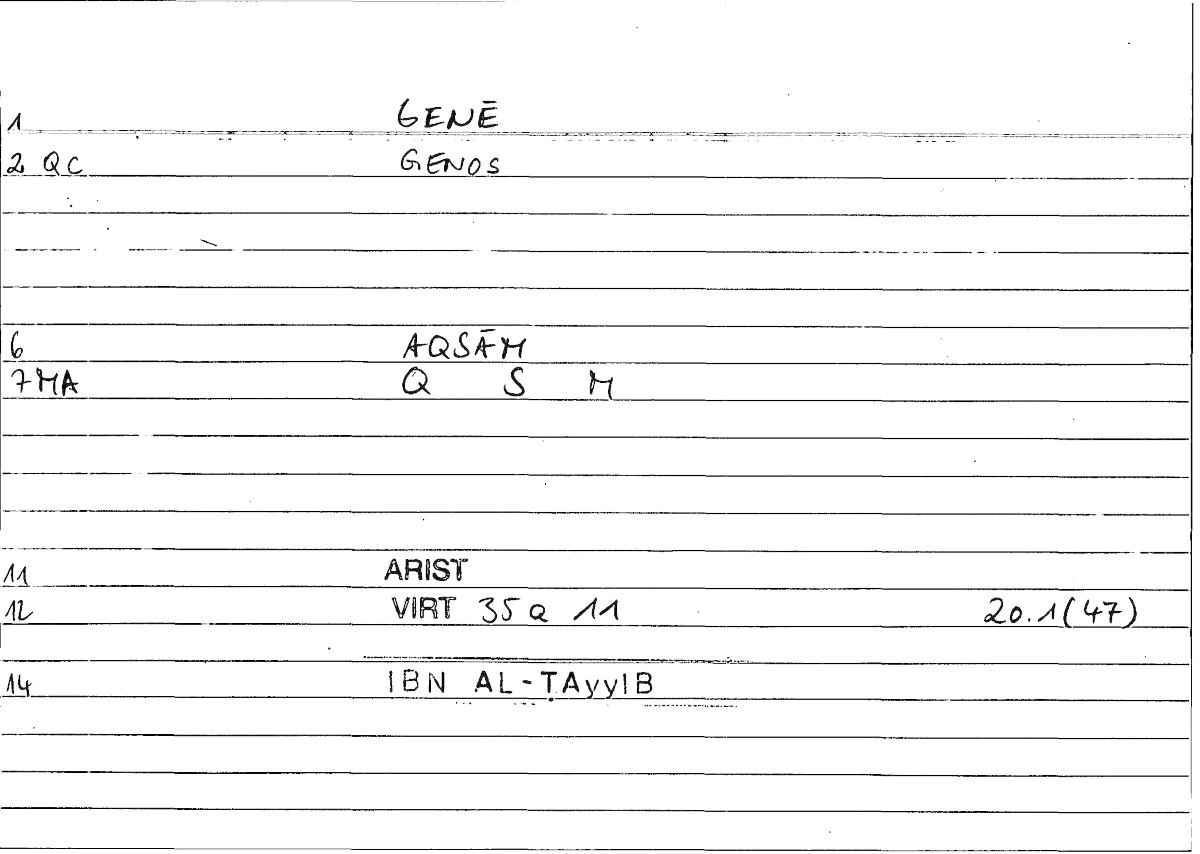 1 GENĒ
2 QC GENOS
6 AQSĀM
7 MA Q S M
11 ARIST
12 VIRT 35 a 11 20.1(47)
14 IBN AL-ṬAyyIB